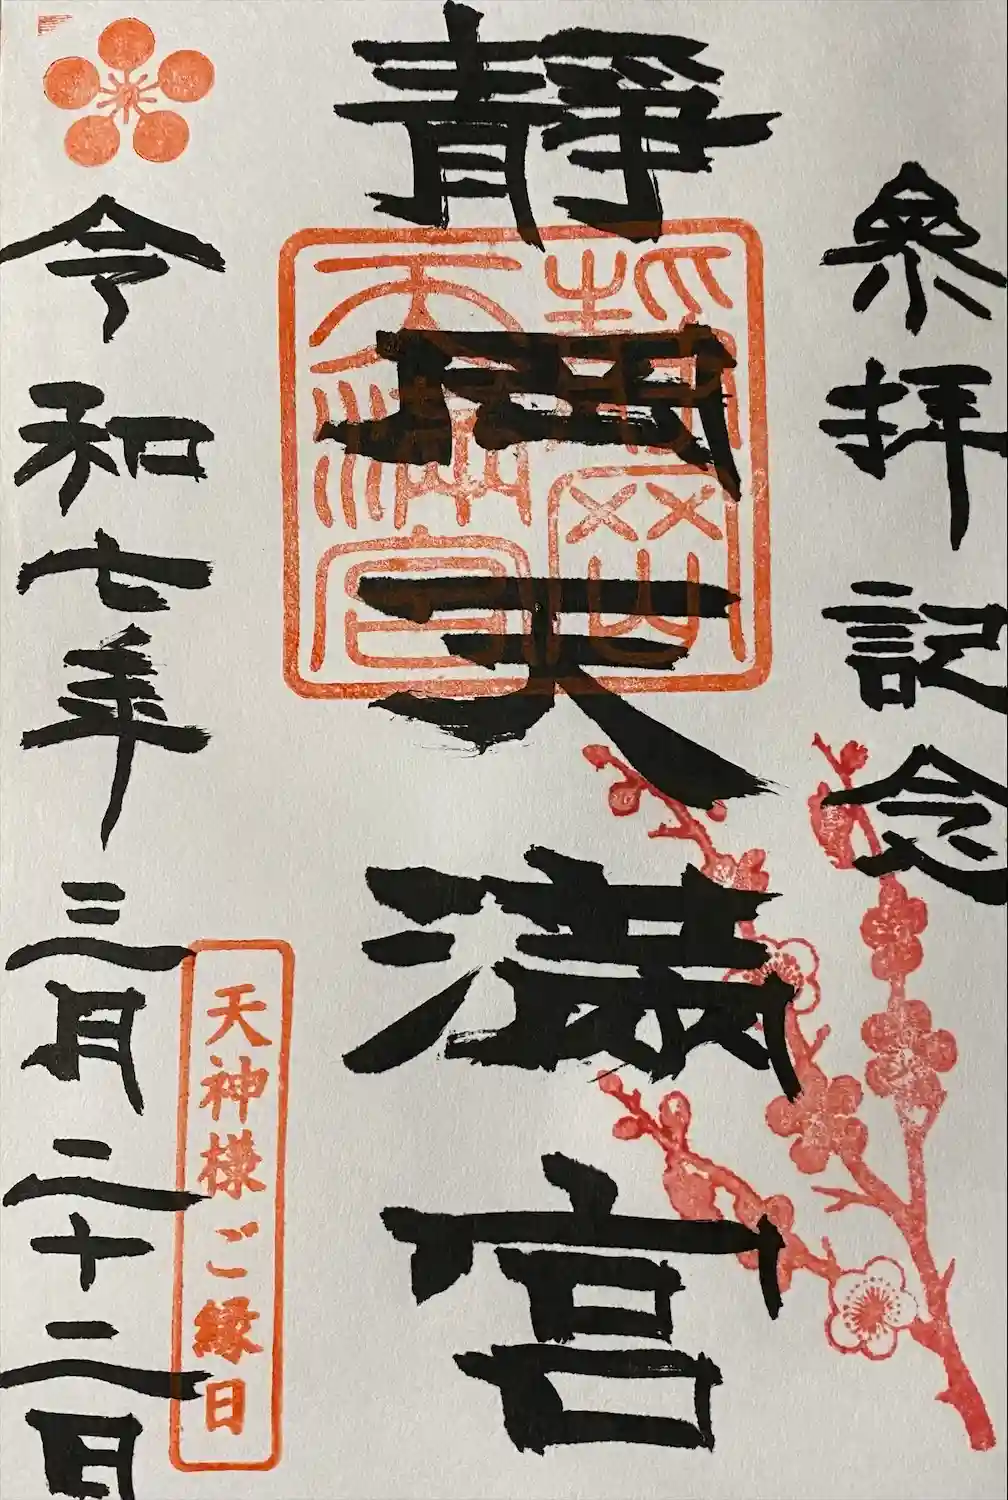 參拝記念
靜岡天満宮
靜岡
天滿宮
天神様ご縁日
令和七年三月二十二日